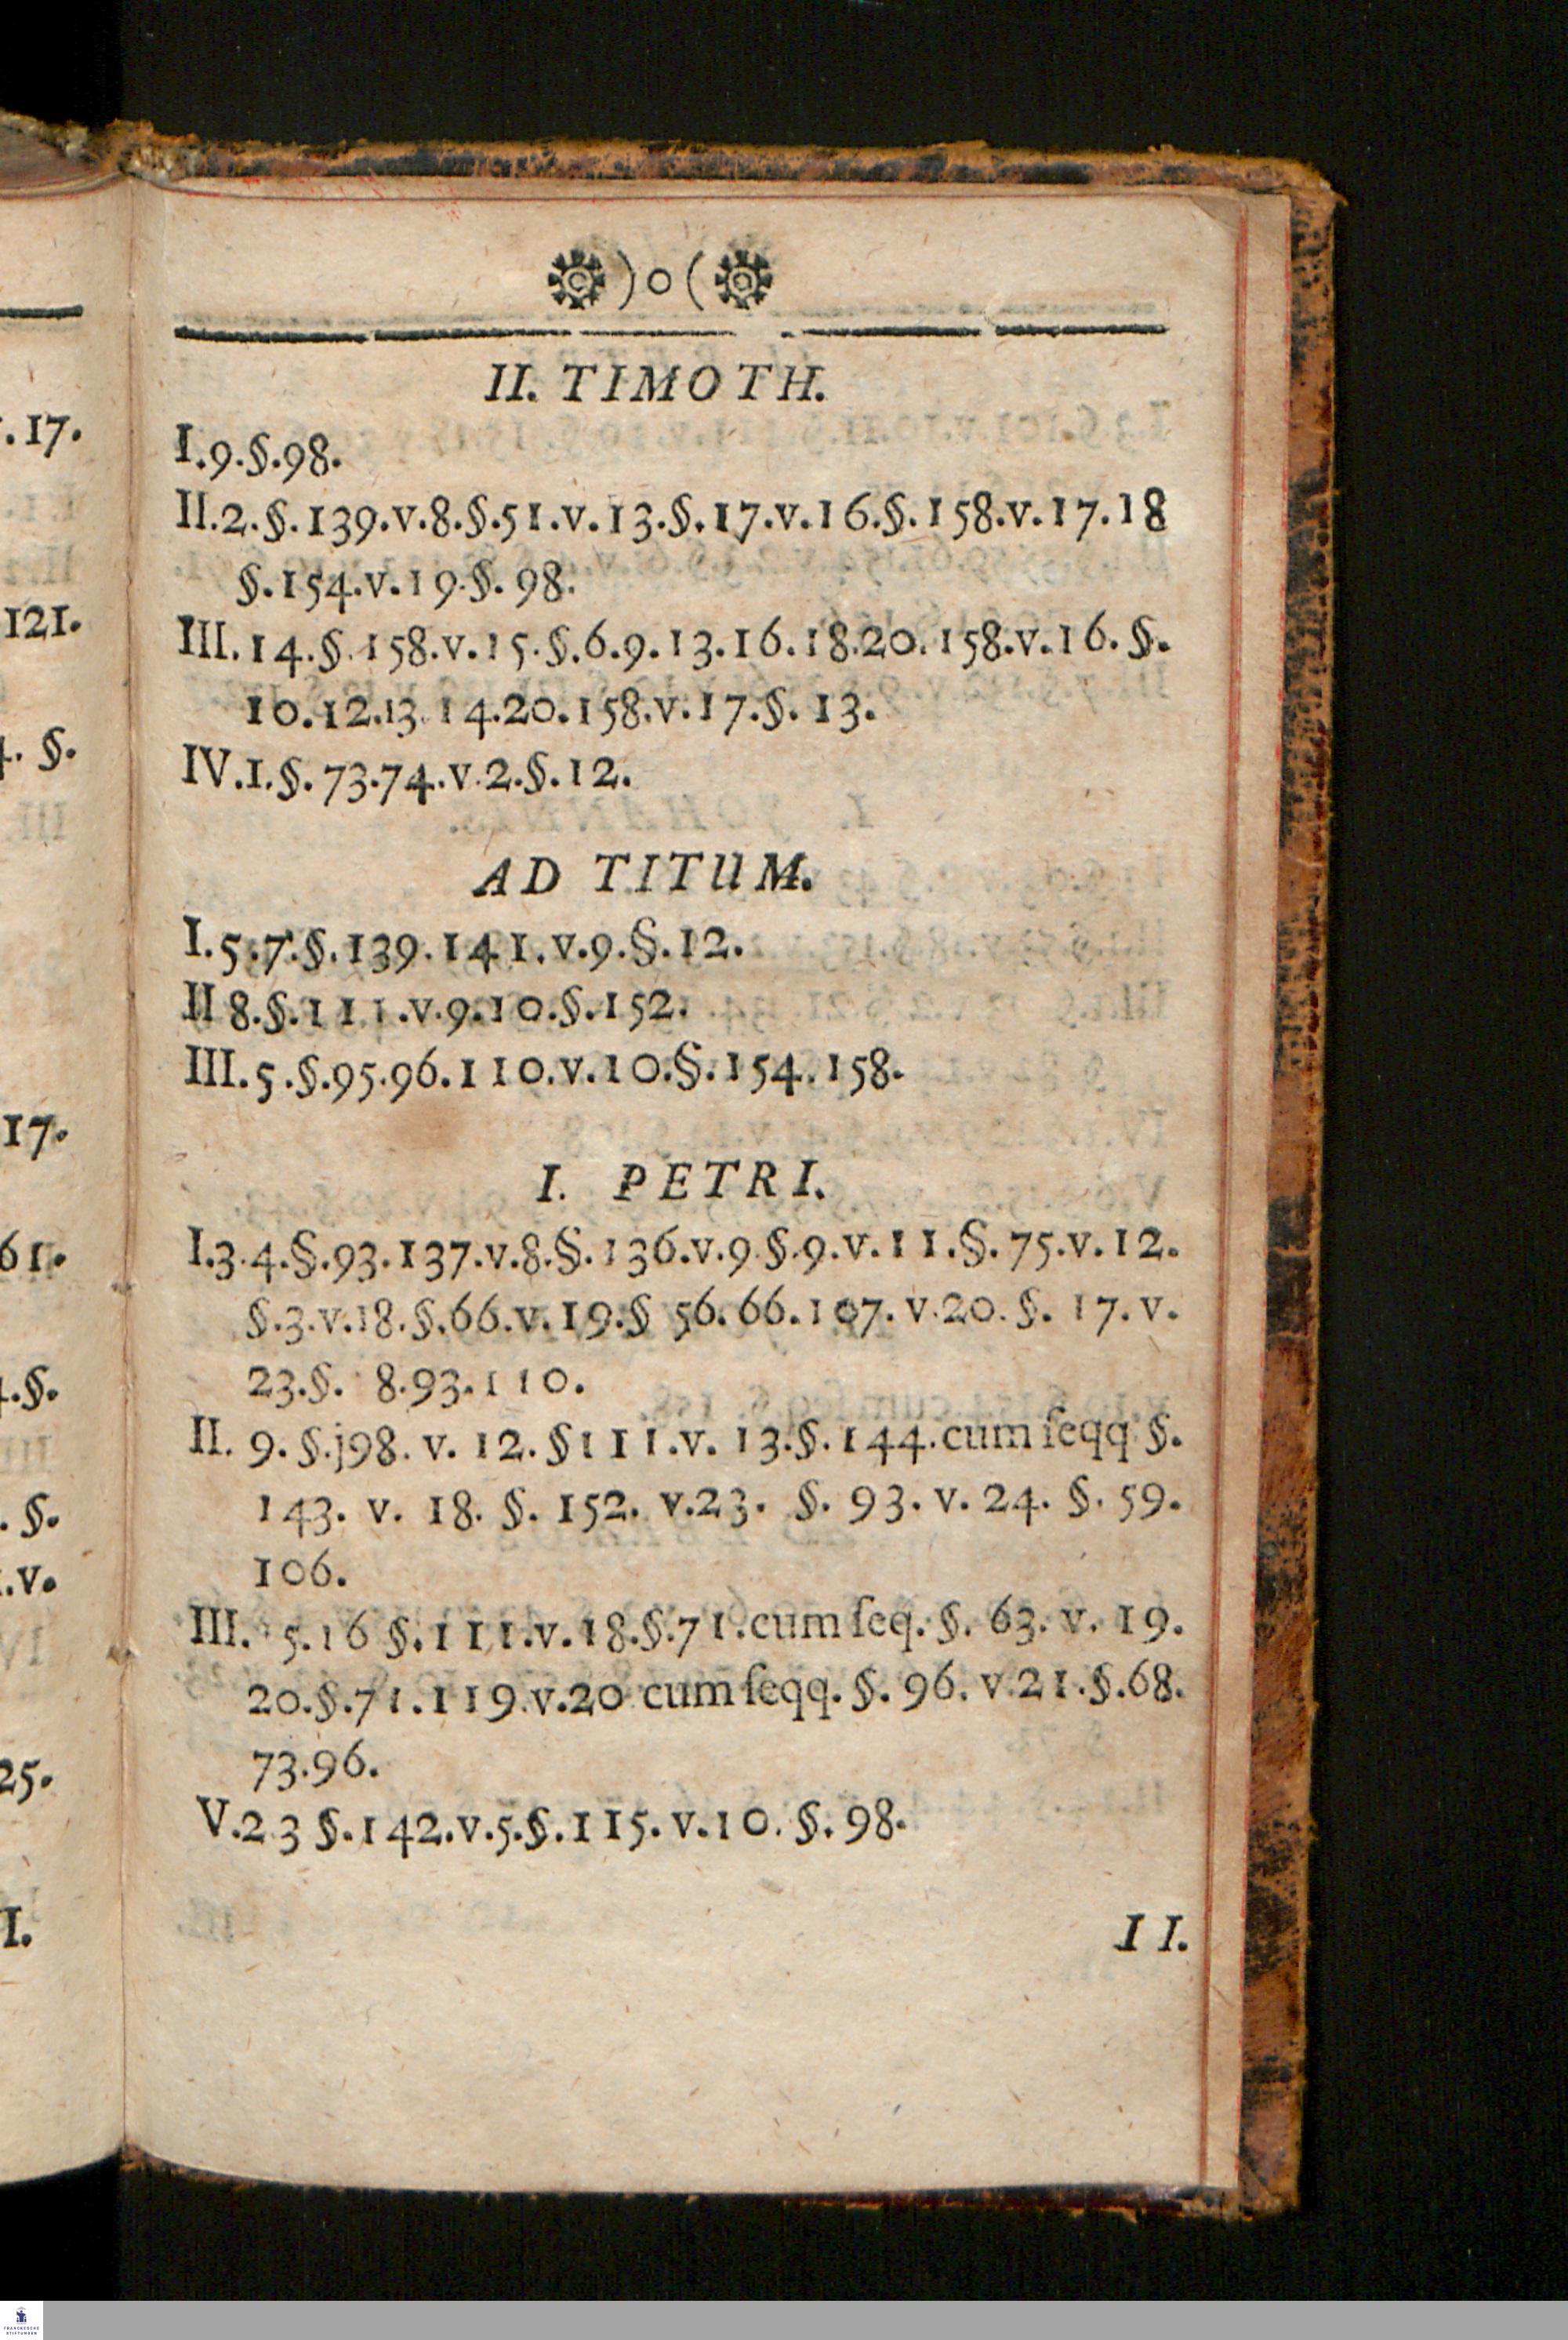 ) o (
II. TIMOTH.
I.9.§.98.
II.2.§.139.v.8.§.51.v.13.§.17.v.16.§.158.v.17.18
§.154.v.19.§.98.
III.14.§.158.v.15.§.6.9.13.16.18.20.158.v.16.§.
10.12.13.14.20.158.v.17.§.13.
IV.I.§.73.74.v.2.§.12.
AD TITUM.
I.5.7.§.139.141.v.9.§.12.
II 8.§.111.v.9.10.§.152.
III.5.§.95.96.110.v.10.§.154.158.
I. PETRI.
I.3.4.§.93.137.v.8.§.136.v.9.§.9.v.11.§.75.v.12.
§.3.v.18.§.66.v.19.§ 56.66.107.v.20.§. 17. v.
23.§. 8.93.110.
II. 9. §.j98. v. 12. §111.v. 13.§.144.cum ſeqq §.
143. v. 18. §. 152. v.23. §. 93. v. 24. §. 59.
106.
III. 5.16 §.111.v.18.§.71.cum ſeq. §. 63. v. 19.
20.§.71.119.v.20 cum ſeqq. §. 96. v.21.§.68.
73.96.
V.2 3 §.142.v.5.§.115.v.10.§.98.
II.
.17.
121.
§.
17.
61.
.§.
. §.
.v.
25.
I.
FRANCKESCHE
STIFTUNGEN